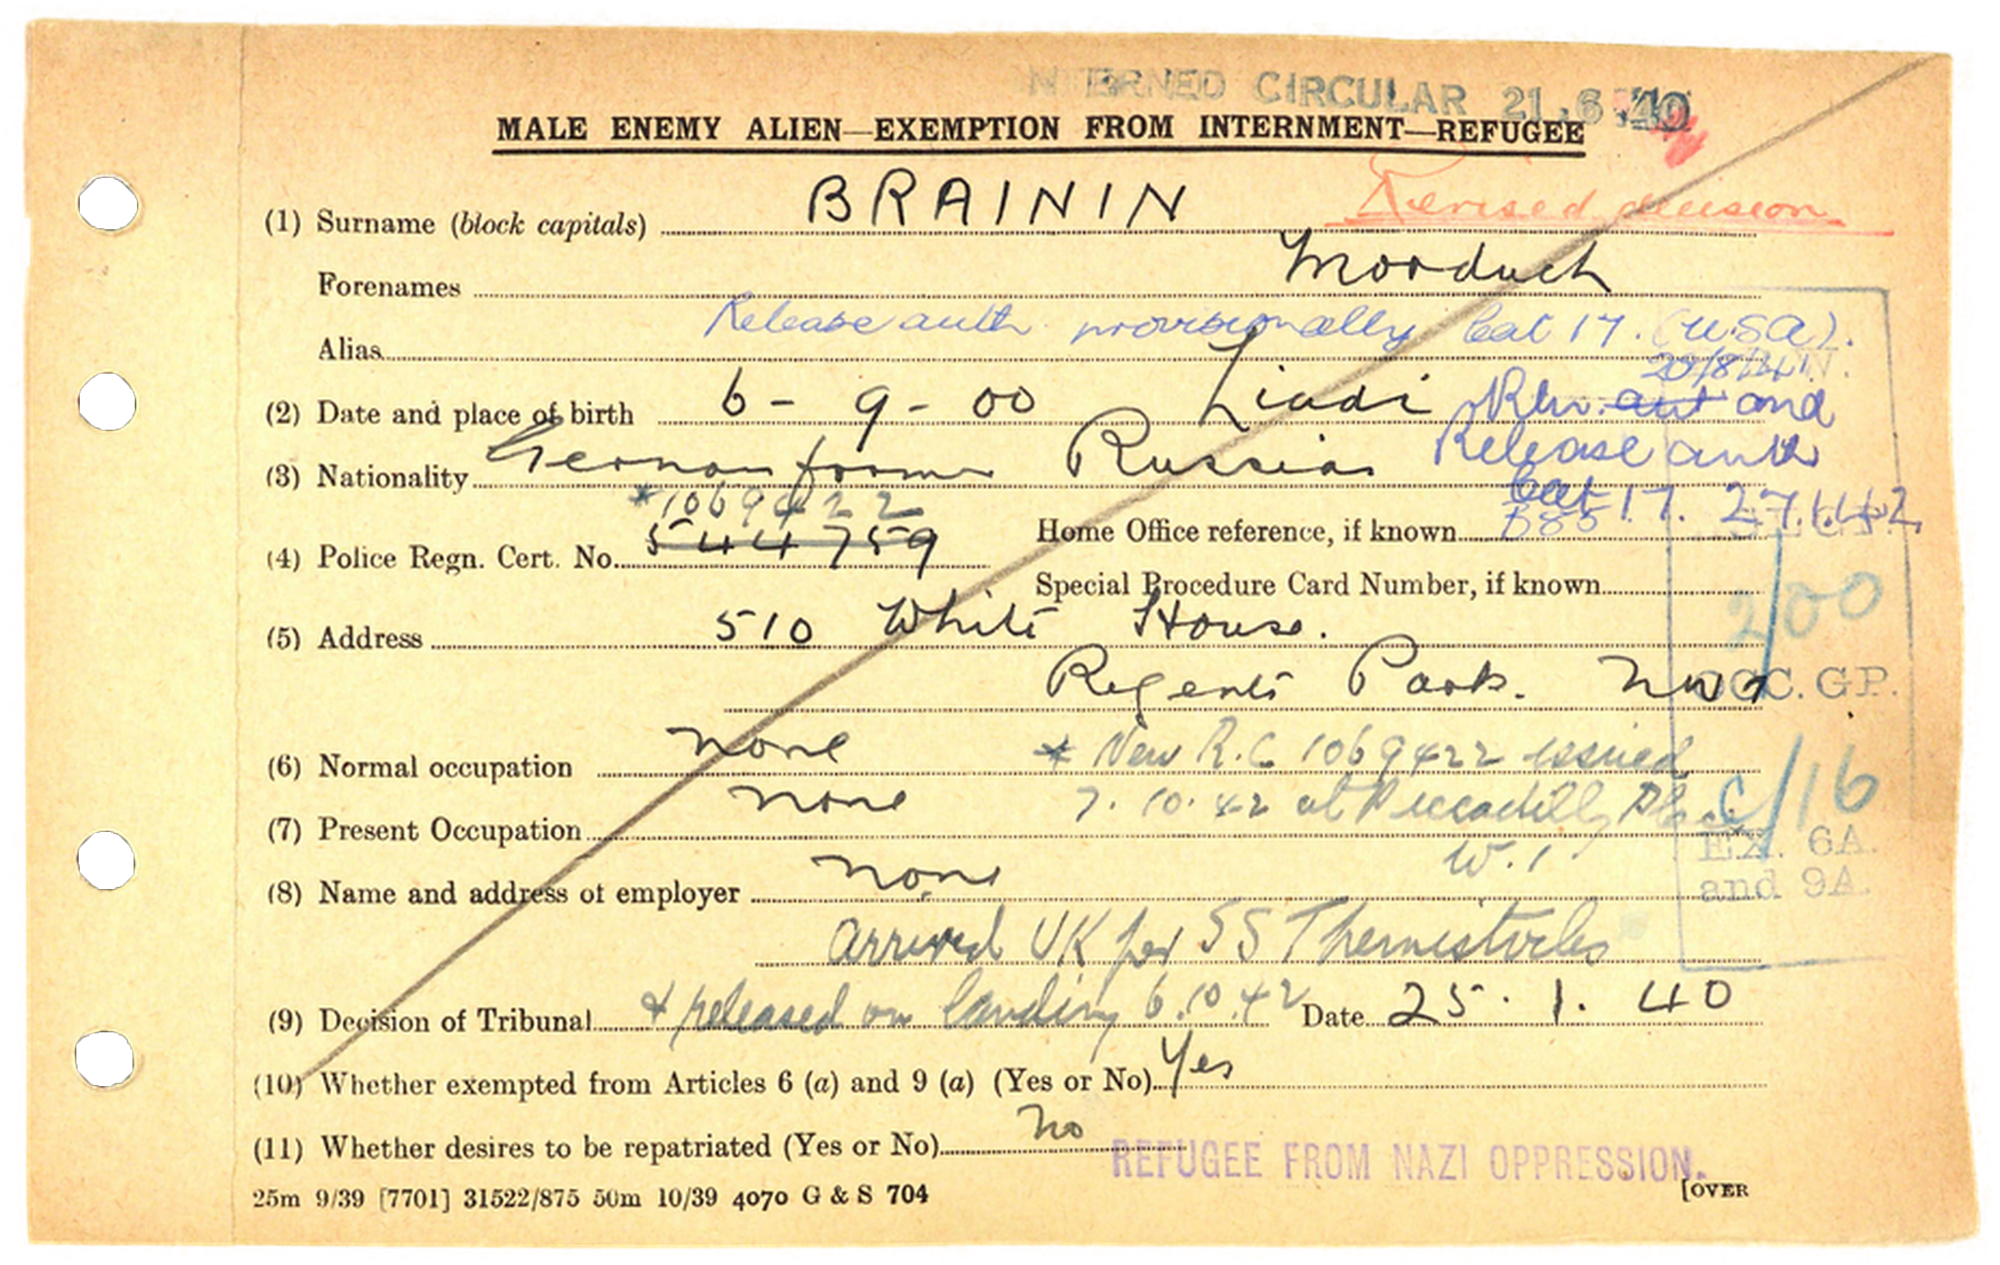 INTERNED CIRCULAR 21.6.40
MALE ENEMY ALIEN—EXEMPTION FROM INTERNMENT—REFUGEE
Revised decision
(1) Surname (block capitals) BRAININ
Forenames Morduch
Release auth. provisionally Cat 17. (USA).
Alias
20/8/41
(2) Date and place of birth 6-9-00 Liadi
Rev. aut and
Release auth
(3) Nationality German former Russian
Cat 17. 27.1.42
*1069422
(4) Police Regn. Cert. No. 544759
Home Office reference, if known
Special Procedure Card Number, if known
200
(5) Address 510 White House.
Regents Park. NW1
OCC. GP.
(6) Normal occupation none
* New R.C 1069422 issued
(7) Present Occupation none
7.10.42 at Piccadilly Place
W.1
C/16
EX. 6A.
and 9A.
(8) Name and address of employer none
arrived UK per SS Themistocles
(9) Decision of Tribunal & released on landing 6.10.42 Date 25.1.40
(10) Whether exempted from Articles 6 (a) and 9 (a) (Yes or No) Yes
(11) Whether desires to be repatriated (Yes or No) No
REFUGEE FROM NAZI OPPRESSION.
25m 9/39 [7701] 31522/875 50m 10/39 4070 G & S 704
[OVER